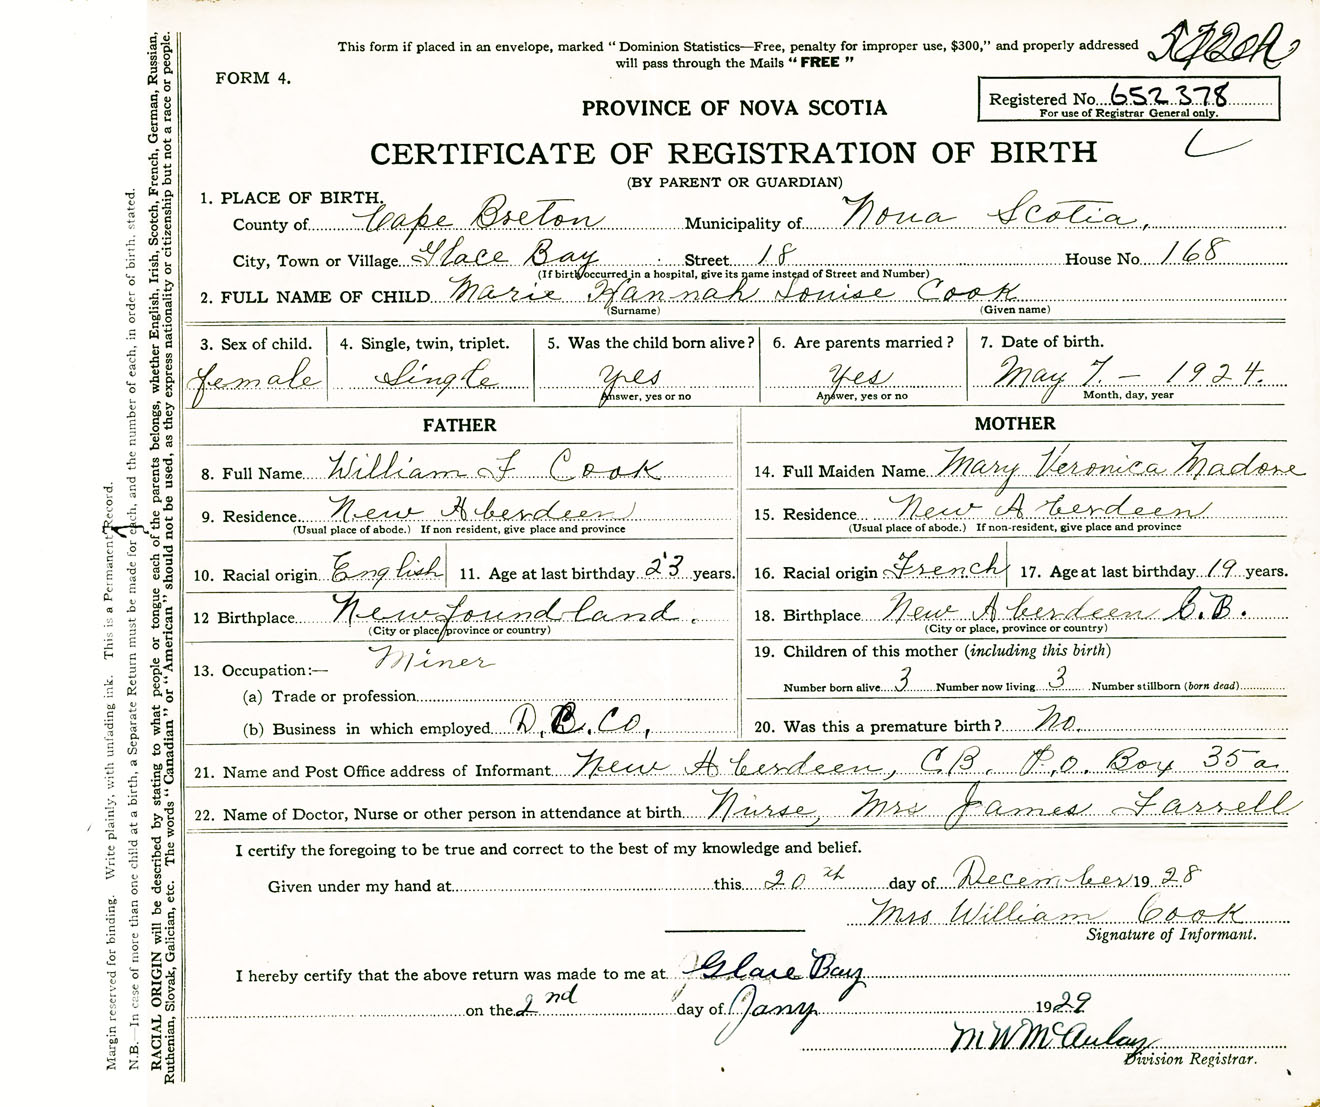 This form if placed in an envelope, marked "Dominion Statistics—Free, penalty for improper use, $300," and properly addressed
will pass through the Mails "FREE"
FORM 4.
PROVINCE OF NOVA SCOTIA
Registered No. 652378
For use of Registrar General only.
CERTIFICATE OF REGISTRATION OF BIRTH
(BY PARENT OR GUARDIAN)
1. PLACE OF BIRTH.
County of Cape Breton Municipality of Nova Scotia,
City, Town or Village Glace Bay Street 18 House No. 168
(If birth occurred in a hospital, give its name instead of Street and Number)
2. FULL NAME OF CHILD Marie Hannah Louise Cook
(Surname) (Given name)
3. Sex of child. 4. Single, twin, triplet. 5. Was the child born alive? 6. Are parents married? 7. Date of birth.
female Single yes Yes May 7.— 1924.
Answer, yes or no Answer, yes or no Month, day, year
FATHER MOTHER
8. Full Name William F Cook 14. Full Maiden Name Mary Veronica Madore
9. Residence New Aberdeen 15. Residence New Aberdeen
(Usual place of abode.) If non resident, give place and province (Usual place of abode.) If non-resident, give place and province
10. Racial origin English 11. Age at last birthday 23 years. 16. Racial origin French 17. Age at last birthday 19 years.
12 Birthplace Newfoundland. 18. Birthplace New Aberdeen C.B.
(City or place, province or country) (City or place, province or country)
13. Occupation:— Miner 19. Children of this mother (including this birth)
(a) Trade or profession Number born alive 3 Number now living 3 Number stillborn (born dead)
(b) Business in which employed D.B.Co. 20. Was this a premature birth? No.
21. Name and Post Office address of Informant New Aberdeen, C.B. P.O. Box 35a
22. Name of Doctor, Nurse or other person in attendance at birth Nurse, Mrs James Farrell
I certify the foregoing to be true and correct to the best of my knowledge and belief.
Given under my hand at this 20th day of December 1928
Mrs William Cook
Signature of Informant.
I hereby certify that the above return was made to me at Glace Bay
on the 2nd day of Jany 1929
M W McAulay
Division Registrar.
Margin reserved for binding. Write plainly, with unfading ink. This is a Permanent Record.
N.B.—In case of more than one child at a birth, a Separate Return must be made for each, and the number of each, in order of birth, stated.
RACIAL ORIGIN will be described by stating to what people or tongue each of the parents belongs, whether English, Irish, Scotch, French, German, Russian,
Ruthenian, Slovak, Galician, etc. The words "Canadian" or "American" should not be used, as they express nationality or citizenship but not a race or people.